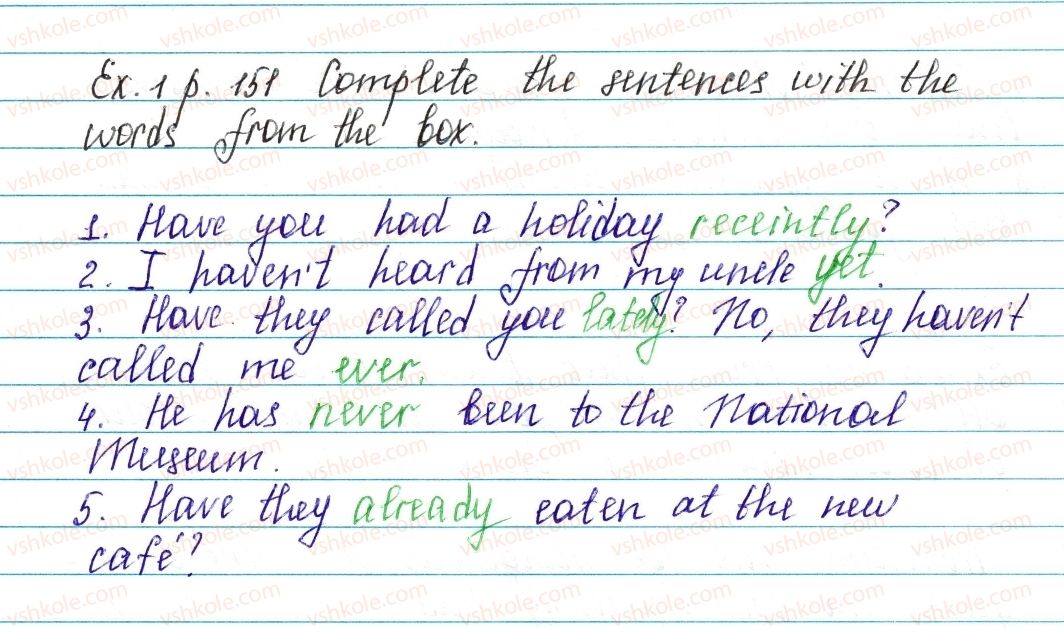 Ex. 1 p. 151 Complete the sentences with the
words from the box.
1. Have you had a holiday receintly?
2. I haven't heard from my uncle yet.
3. Have they called you lately? No, they haven't
called me ever.
4. He has never been to the National
Museum.
5. Have they already eaten at the new
café?